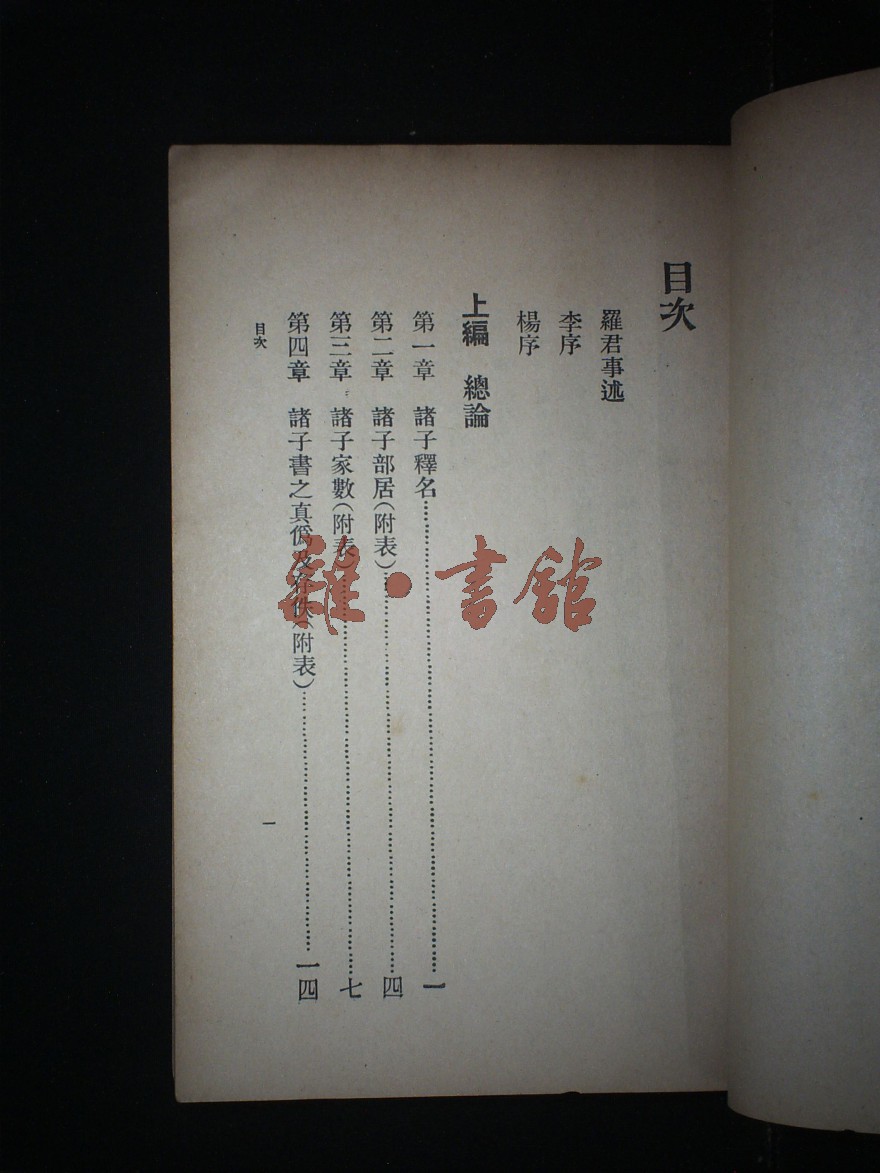 目次
羅君事述
李序
楊序
上編 總論
第一章 諸子釋名……一
第二章 諸子部居(附表)……四
第三章 諸子家數(附表)……七
第四章 諸子書之真僞及存佚(附表)……一四
目次
一
雜·書館